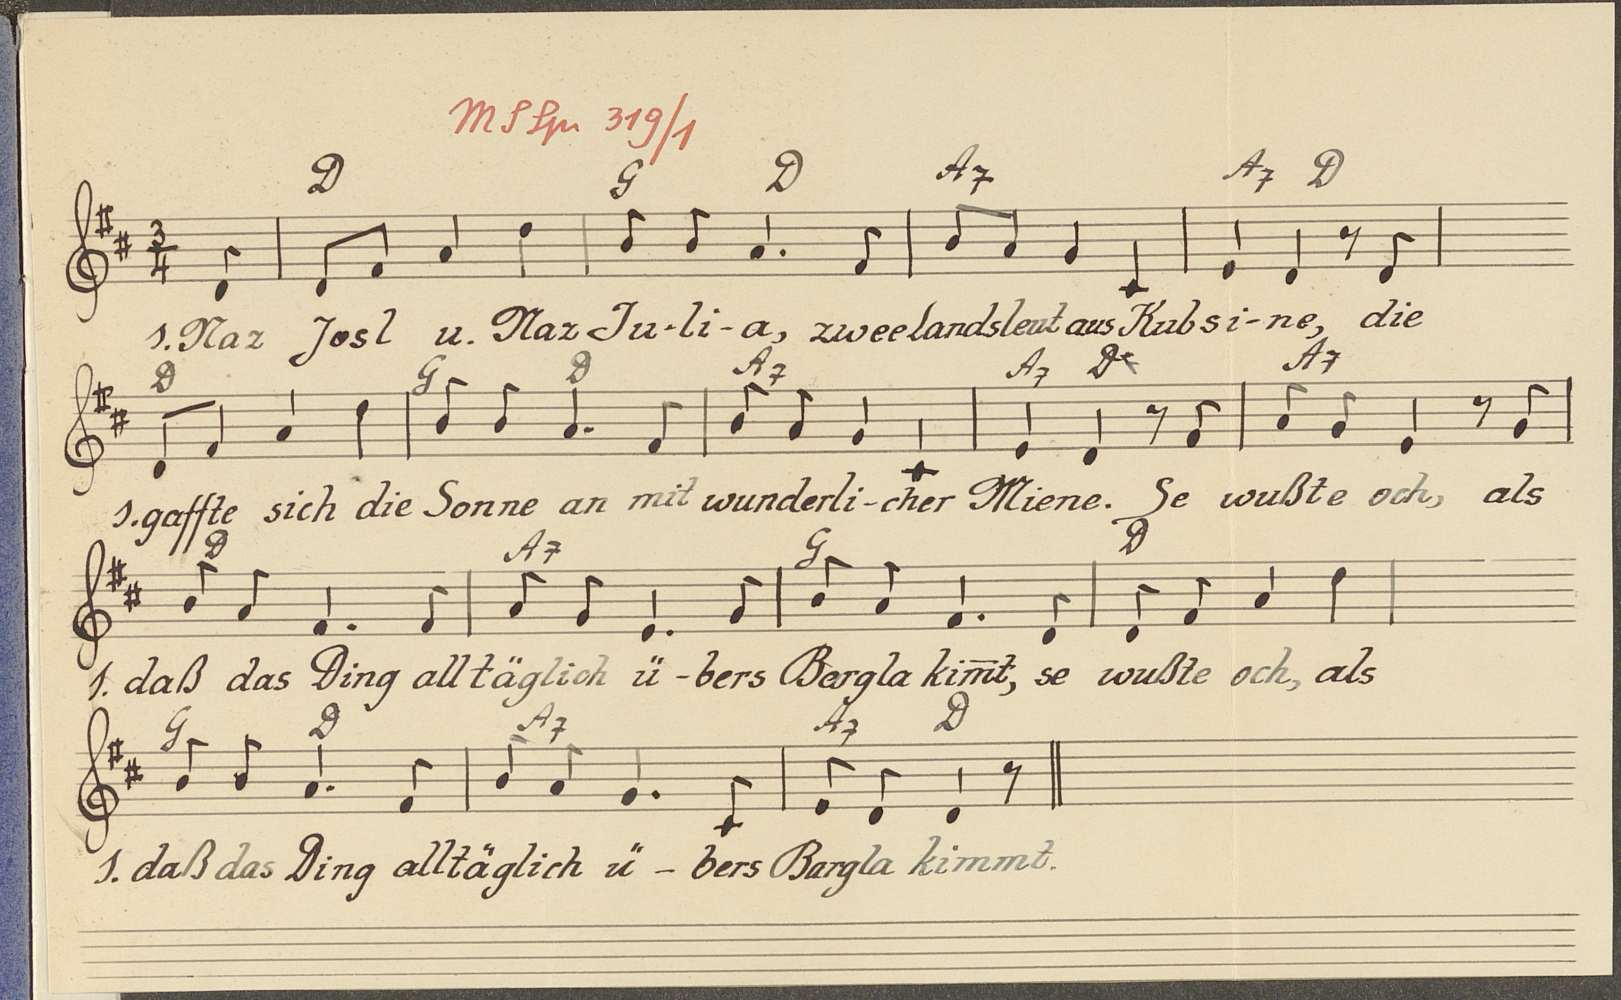 319/1
D G D A7 A7 D
3
4
1. Naz Josl u. Naz Ju-li-a, zwee landsleut aus Kubsi-ne, die
D G D A7 A7 D A7
1. gaffte sich die Sonne an mit wunderli-cher Miene. Se wußte och, als
D A7 G D
1. daß das Ding alltäglich ü-bers Bergla kim̅t, se wußte och, als
G D A7 A7 D
1. daß das Ding alltäglich ü-bers Bargla kimmt.